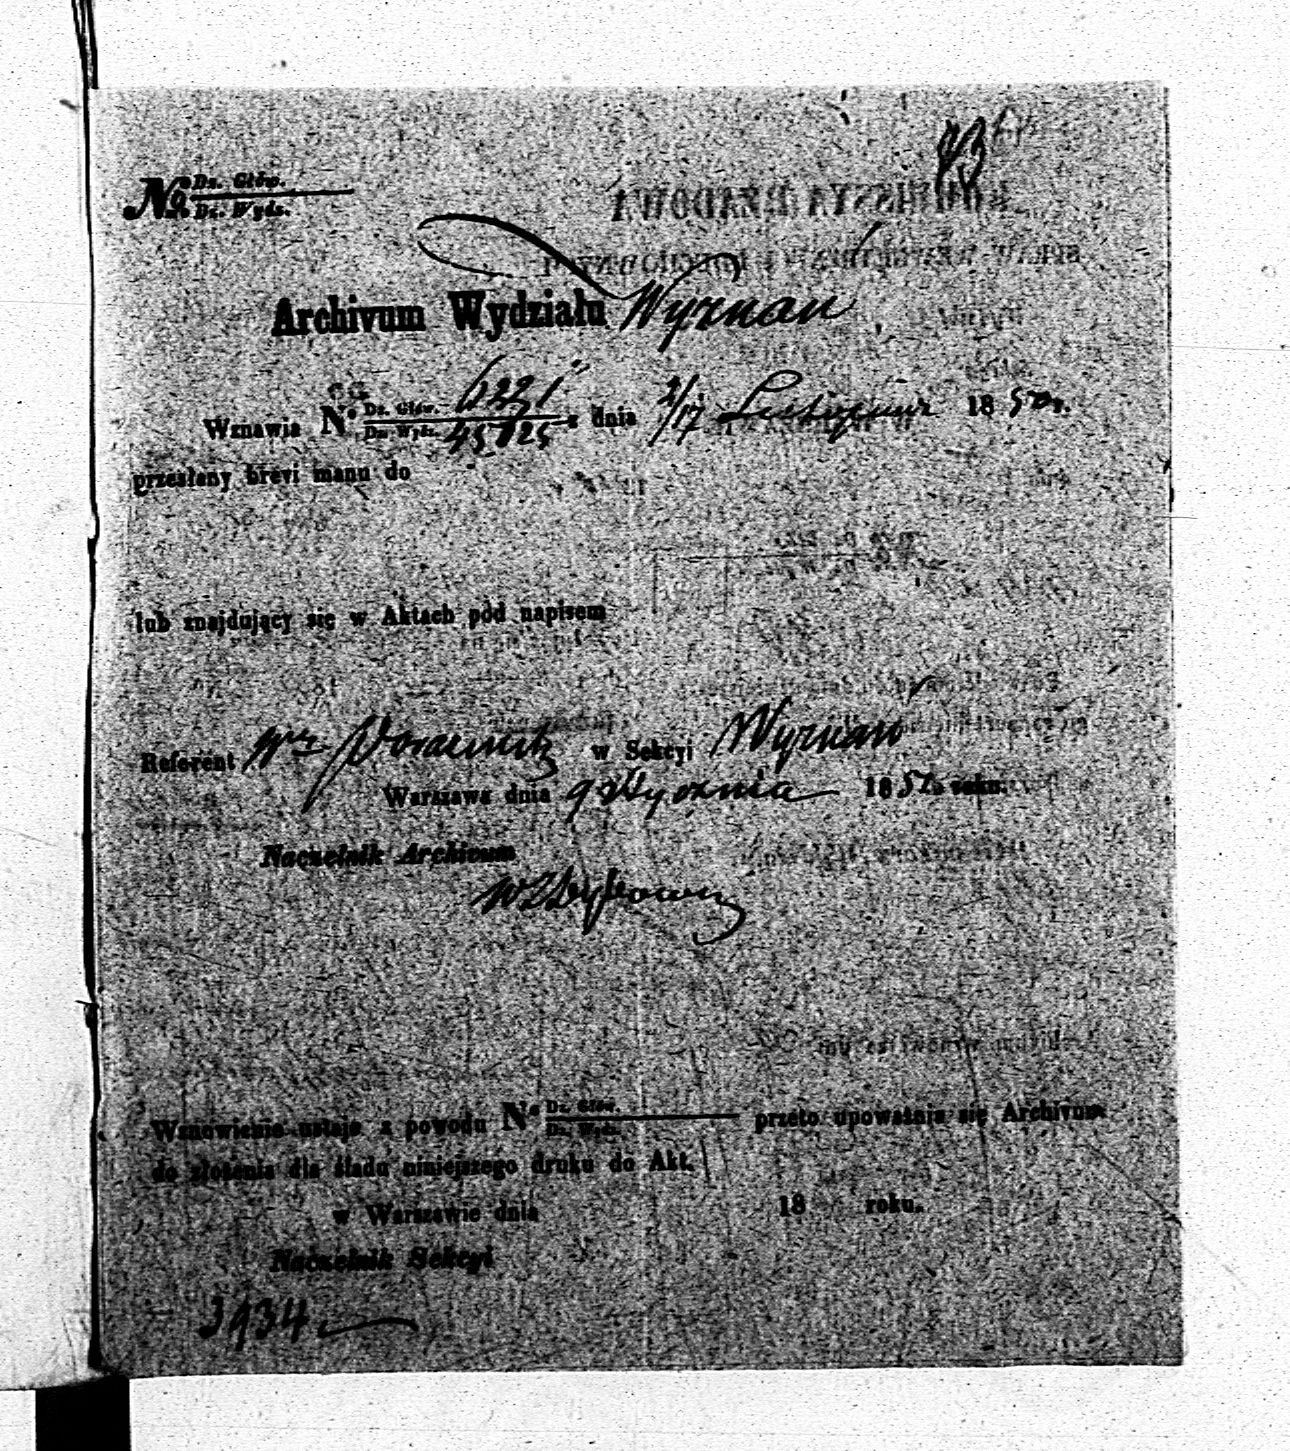 93
No Dz. Głów.
Dz. Wydz.
Archivum Wydziału Wyznań
Wznawia No Dz. Głów. 6221 z dnia 2/17 Listopada 18 50 r.
Dz. Wydz. 45025
przesłany brevi manu do
lub znajdujący się w Aktach pod napisem
Referent w Sekcyi Wyznań
Warszawa dnia 9 Stycznia 18 52 roku.
Naczelnik Archivum
Wznowienie ustaje z powodu No Dz. Głów. przeto upoważnia się Archivum
Dz. Wydz.
do złożenia dla śladu niniejszego druku do Akt.
w Warszawie dnia 18 roku.
Naczelnik Sekcyi
3934